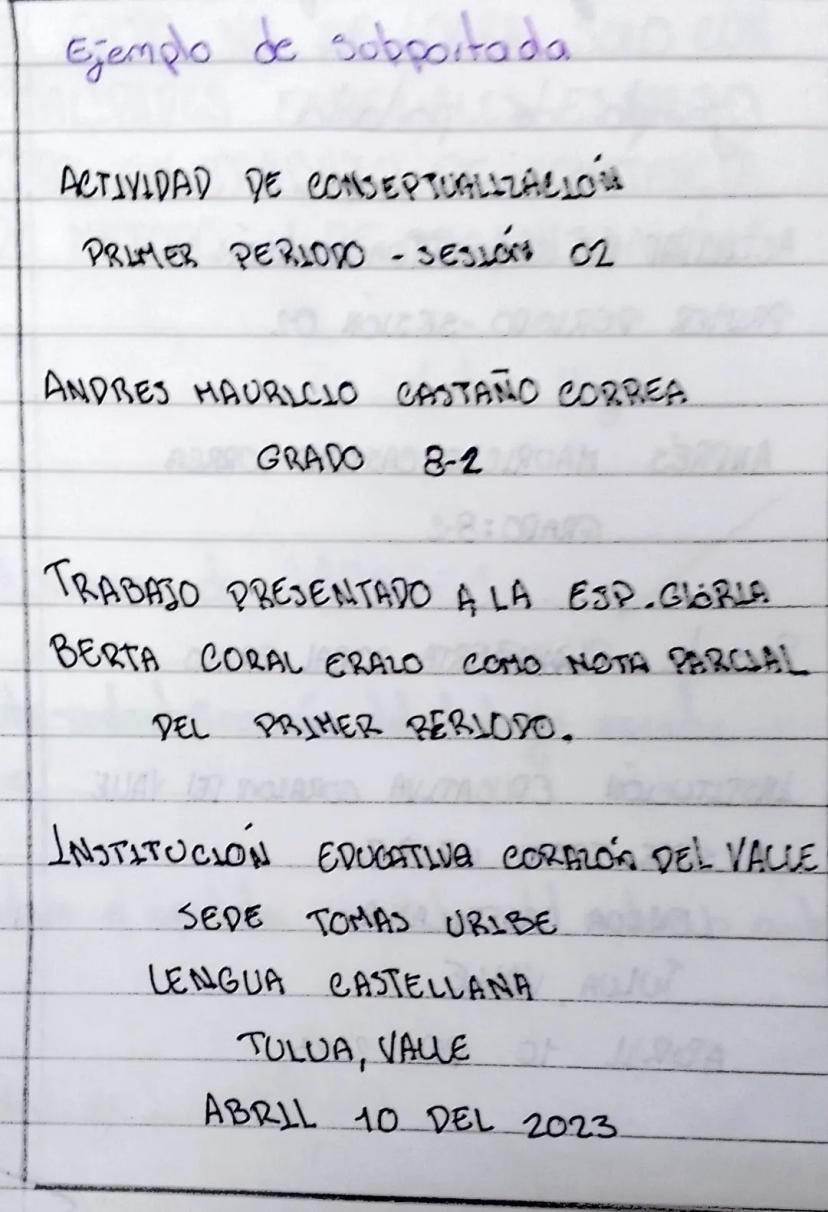 Ejemplo de subportada
ACTIVIDAD DE CONSEPTUALIZACIÓN
PRIMER PERIODO - SESIÓN 02
ANDRES MAURICIO CASTAÑO CORREA
GRADO 8-2
TRABAJO PRESENTADO A LA ESP. GLORIA
BERTA CORAL ERAZO COMO NOTA PARCIAL
DEL PRIMER PERIODO.
INSTITUCIÓN EDUCATIVA CORAZÓN DEL VALLE
SEDE TOMAS URIBE
LENGUA CASTELLANA
TULUA, VALLE
ABRIL 10 DEL 2023